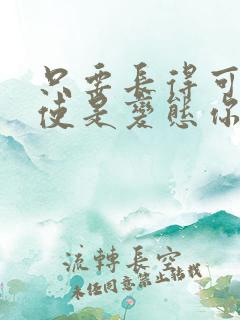 只要長得可
使是變態你
流轉長空
未经同意禁止转载